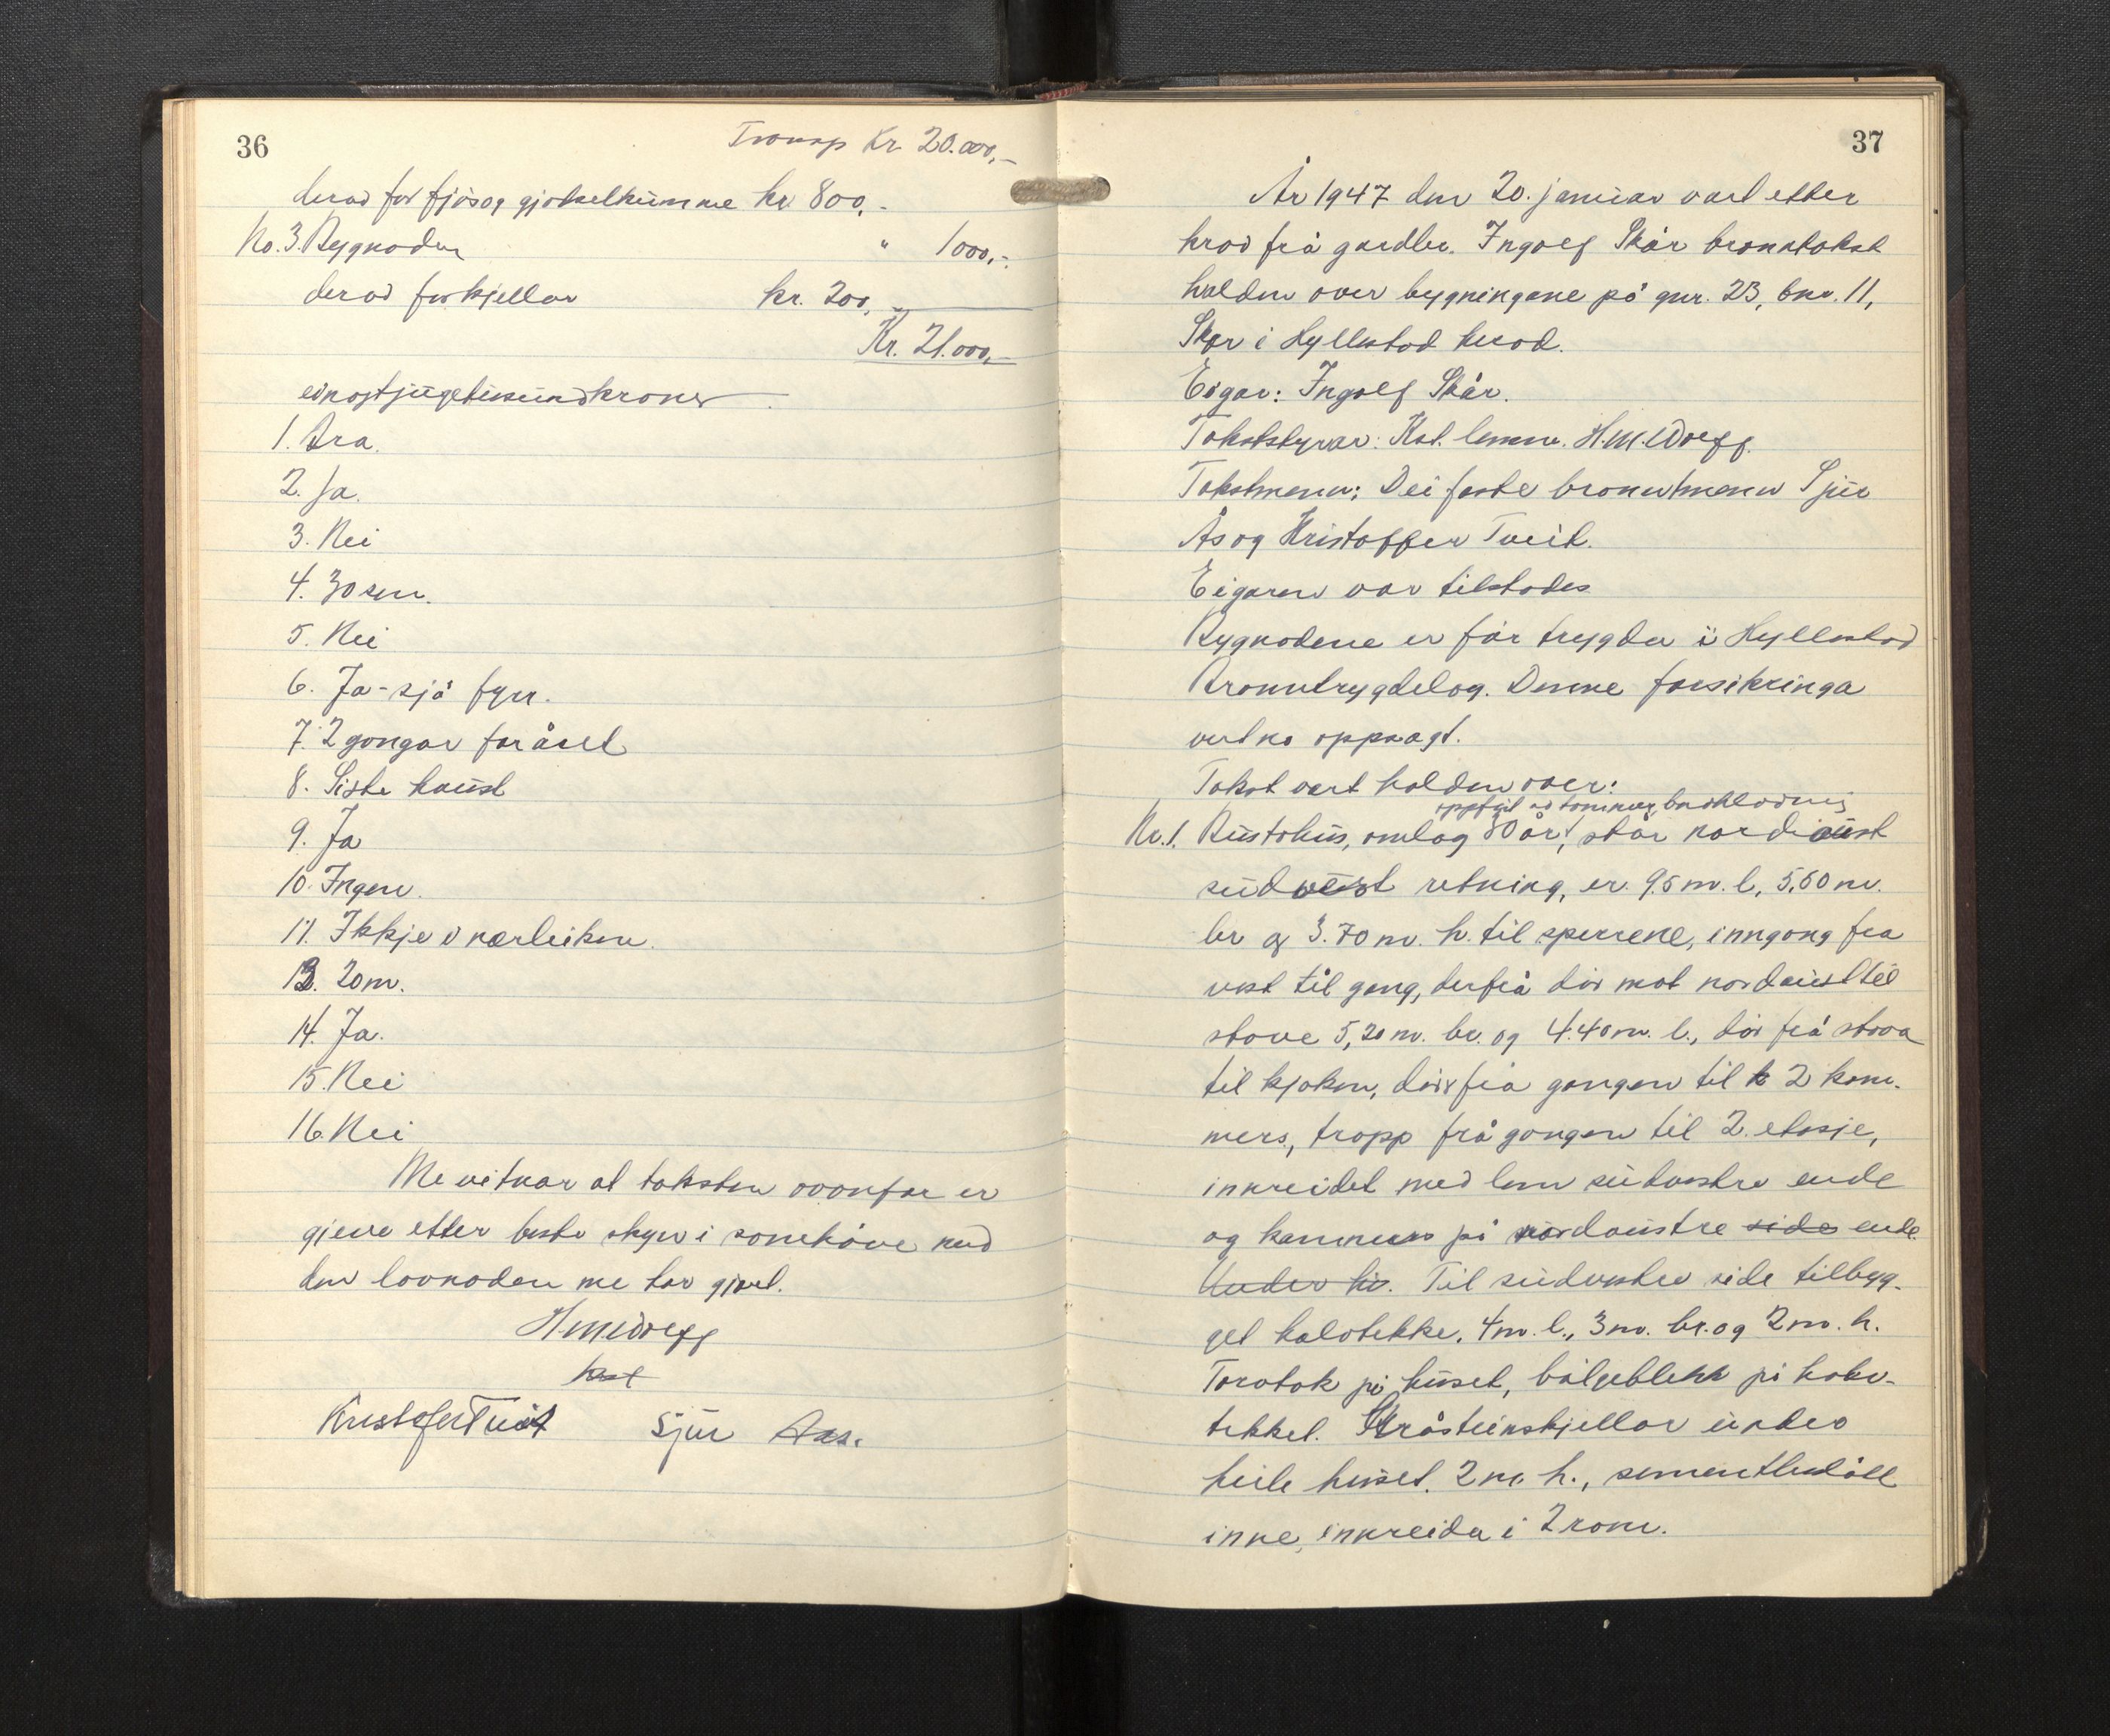 36
Transp Kr. 20.000,-
derav for fjøs og gjødselkumme kr 800,-
No. 3. Bygnaden " 1000,-
derav for kjellar kr. 200,-
Kr. 21.000,-
einogtjugetusundkroner
1. Bra.
2. Ja.
3. Nei
4. 30 cm.
5. Nei
6. Ja - sjå fyrr.
7. 2 gongar for året
8. Siste haust
9. Ja
10. Ingen.
11. Ikkje i nærleiken.
13. 20 m.
14. Ja.
15. Nei
16. Nei
Me vitnar at taksten ovanfor er
gjeve etter beste skyn i samehøve med
den lovnaden me har gjevt.
H.M. Wergg
Kristofer Tveit Sjur Aas.
37
År 1947 den 20. januar vart etter
krav frå gardbr. Ingolf Skår branntakst
halden over bygningane på gnr. 23, bnr. 11,
Skor i Hyllestad herad.
Eigar: Ingolf Skår.
Takststyrar: Kst. lensm. H.M.
Takstmenn: Dei faste branntmenn Sjur
Ås og Kristoffer Tveit.
Eigaren var tilstades
Bygnadene er før trygda i Hyllestad
Branntrygdelag. Denne forsikringa
vert no oppsagt.
Takst vart halden over:
oppført av tømmer, bordkledning
Nr. 1. Bustohus, omlag 80 år, står nordaust
sudvest retning, er 9.5 m. l, 5,60 m.
br og 3.70 m. h. til sperrene, inngong fra
vest til gang, derfrå dør mot nordaust til
stove 5,20 m. br. og 4.40 m. l., dør frå stova
til kjøken, dør frå gangen til k 2 kam-
mers, tropp frå gongen til 2. etasje,
innreidet med lem sudvestre ende
og kammers på nordaustre side ende.
Under hu. Til sudvestre side tilbyg-
get halvtekke, 4 m. l., 3 m. br. og 2 m. h.
Torvtak på huset, bølgeblekk på halv-
tekket. Gråsteinskjellar under
heile huset. 2 m. h., sementhudåll
inne, innreida i 2 rom.